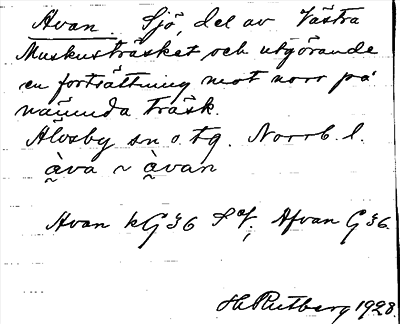 Avan. Sjö, del av Västra
Muskusträsket och utgörande
en fortsättning mot norr på
nämnda träsk.
Älvsby sn o. tg. Norrb. l.
å̀va ~ å̀van
Avan kG36 Afvan G36.
H. Rutberg 1928.